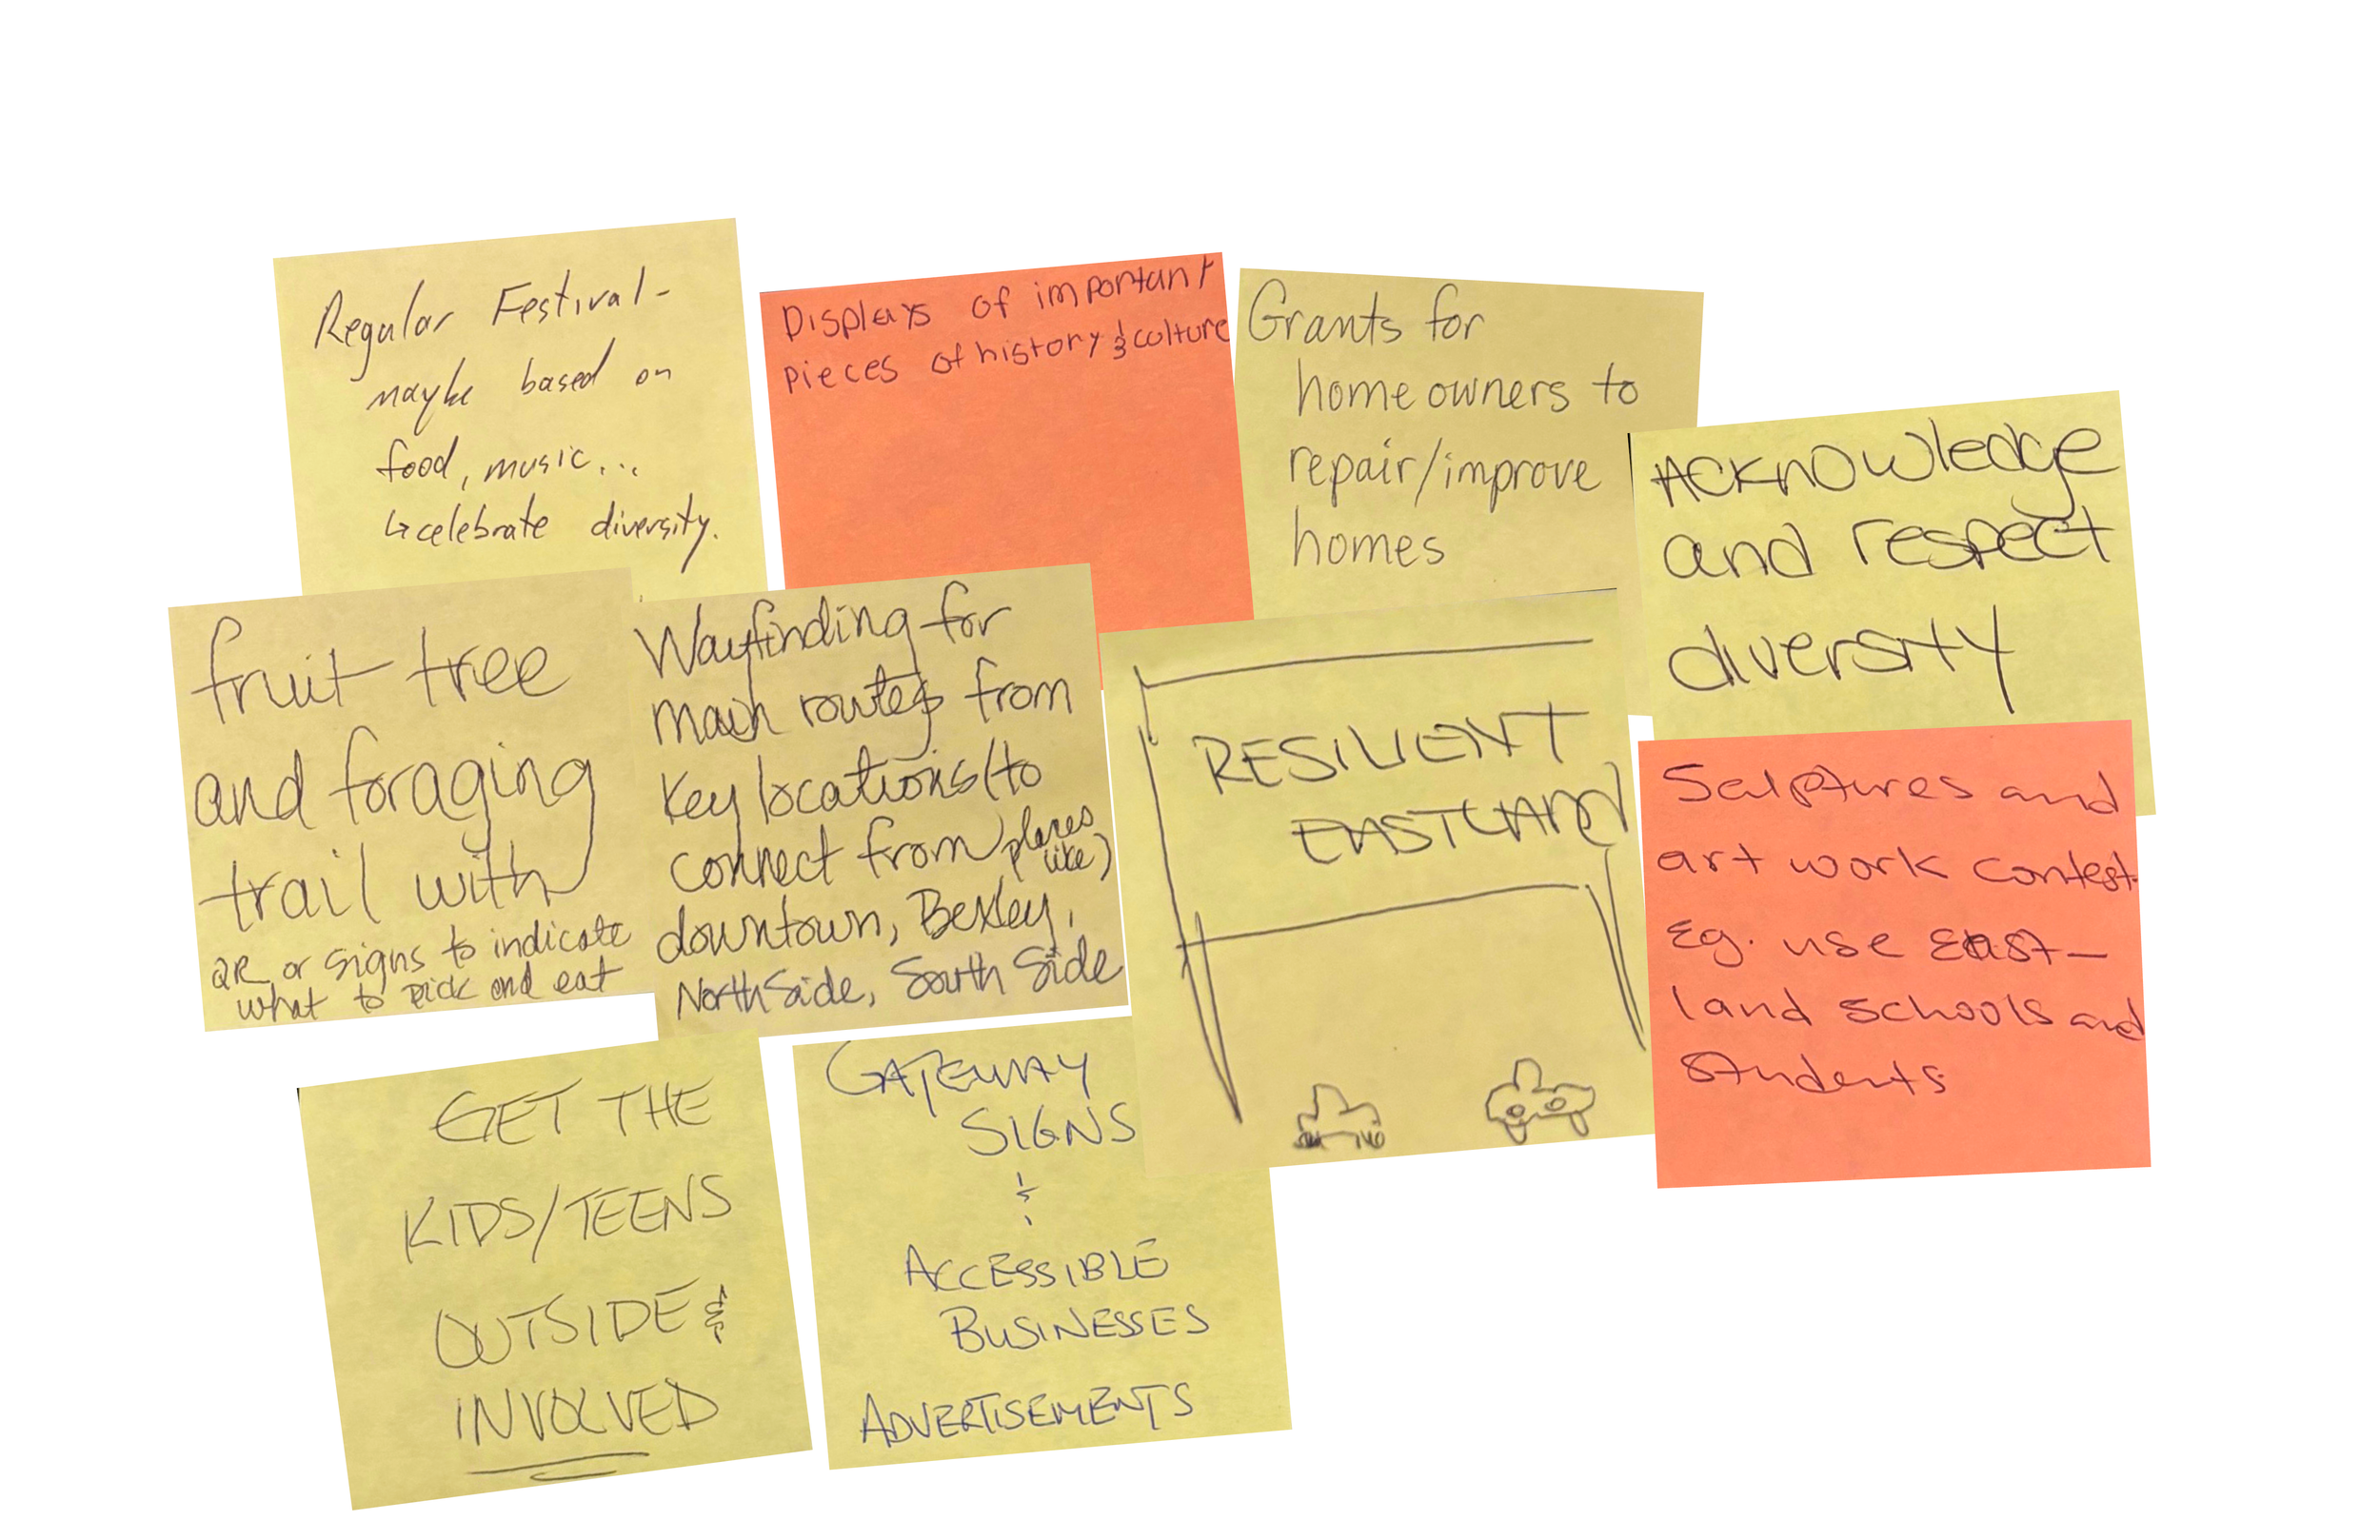 Regular Festival-
maybe based on
food, music...
↳ celebrate diversity.
Displays of important
pieces of history & culture
Grants for
home owners to
repair/improve
homes
Acknowledge
and respect
diversity
fruit tree
and foraging
trail with
QR or signs to indicate
what to pick and eat
Wayfinding for
main routes from
key locations (to
connect from places
like)
downtown, Bexley,
North Side, South Side
RESILIENT
EASTLAND
Sculptures and
art work contest.
Eg. use East-
land schools and
students
GET THE
KIDS/TEENS
OUTSIDE &
INVOLVED
GATEWAY
SIGNS
&
ACCESSIBLE
BUSINESSES
ADVERTISEMENTS